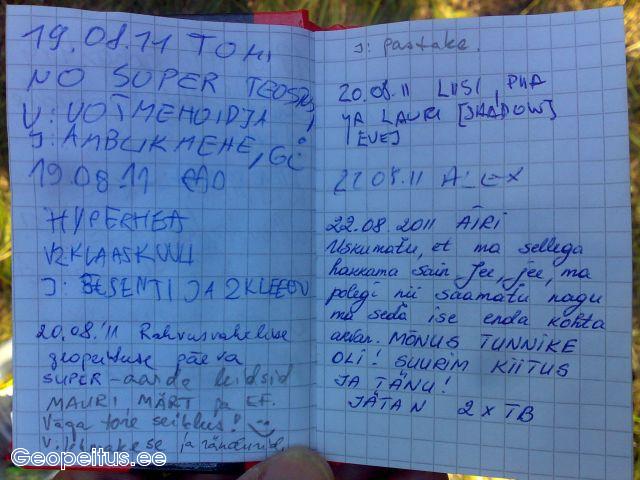 19.08.11 TOMI
NO SUPER TEOSTUS
V: VÕTMEHOIDJA
J: ÄMBLIKMEHE, GC
19.08.11
HYPERHEA
V 2 KLAASKUULI
J: ESENTI JA 2 KLEEPU
20.08.'11 Rahvusvahelise
geopeituse päeva
SUPER-aarde leidsid
MAURI, MÄRT ja EF.
Väga tore seiklus!
ja rändurid.
J: pastaka.
20.08.11 LIISI, PIIA
JA LAURI [SHADOW]
EVEJ
22.08.11 ALEX
22.08.2011 AIRI
Uskumatu, et ma sellega
hakkama sain. Jee, jee, ma
polegi nii saamatu nagu
ma seda ise enda kohta
arvan. MÕNUS TUNNIKE
OLI! SUURIM KIITUS
JA TÄNU!
JÄTAN 2 x TB
Geopeitus.ee